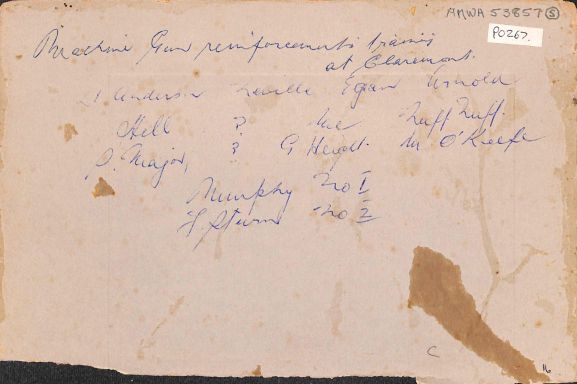 AMWA 53857 (5)
PO267.
Machine Gun reinforcements training
at Claremont.
Anderson Neville Egan Arnold
Hill ? Me Tuff Tuff.
S. Major, ? G Herdt. M O'Keefe
Murphy No I
Sturm No 2
C
16